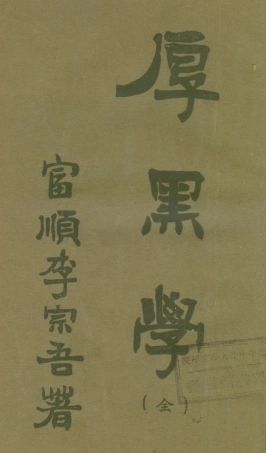 厚黑學
(全)
富順李宗吾著